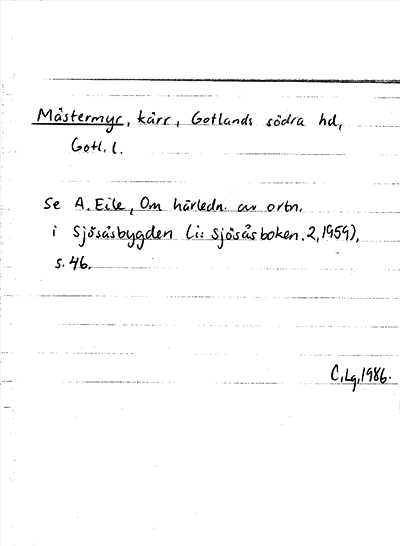 Mästermyr, kärr, Gotlands södra hd,
Gotl. l.
Se A. Eile, Om härledn. av ortn.
i Sjösåsbygden (i: Sjösåsboken. 2, 1959),
s. 46.
C, Lg, 1986.